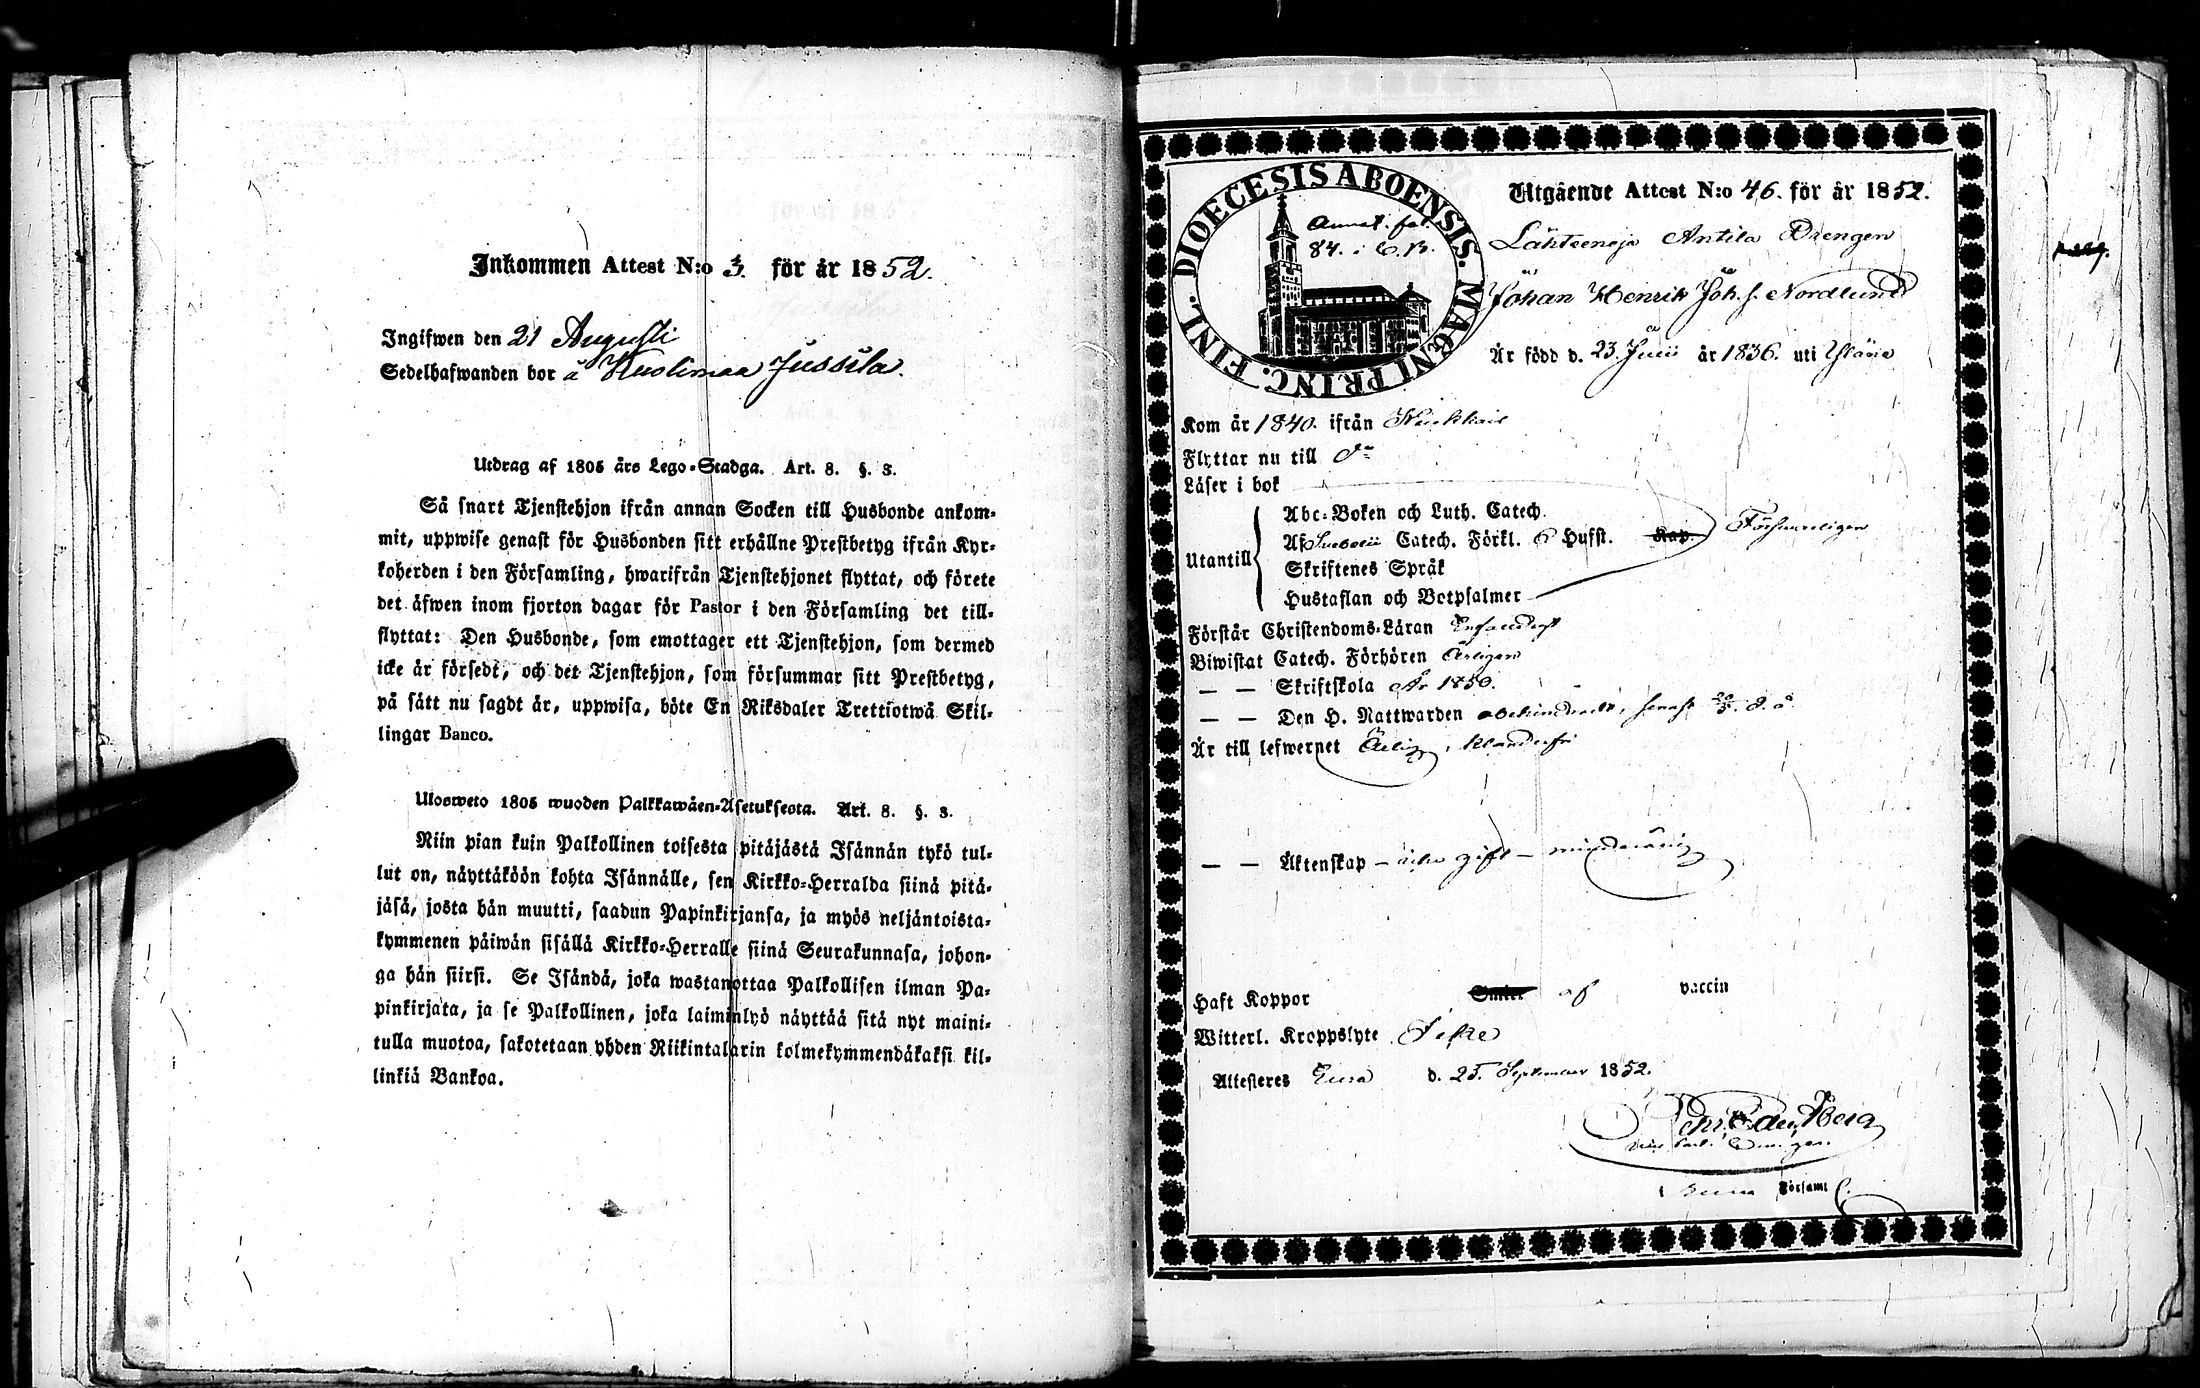 Inkommen Attest N:o 3. för år 1852.
Ingifwen den 21 Augusti
Sedelhafwanden bor å Kuolimaa Jussila.
Utdrag af 1805 års Lego-Stadga. Art. 8. §. 3.
Så snart Tjenstehjon ifrån annan Socken till Husbonde ankom-
mit, uppwise genast för Husbonden sitt erhållne Prestbetyg ifrån Kyr-
koherden i den Församling, hwarifrån Tjenstehjonet flyttat, och förete
det äfwen inom fjorton dagar för Pastor i den Församling det till-
flyttat: Den Husbonde, som emottager ett Tjenstehjon, som dermed
icke är försedt, och det Tjenstehjon, som försummar sitt Prestbetyg,
på sätt nu sagdt är, uppwisa, böte En Riksdaler Trettiotwå Skil-
lingar Banco.
Ulosweto 1805 wuoden Palkkawäen-Asetuksesta. Art. 8. §. 3.
Niin pian kuin Palkollinen toisesta pitäjästä Isännän tykö tul-
lut on, näyttäköön kohta Isännälle, sen Kirkko-Herralda siinä pitä-
jäsä, josta hän muutti, saadun Papinkirjansa, ja myös neljäntoista-
kymmenen päiwän sisällä Kirkko-Herralle siinä Seurakunnasa, johon-
ga hän siirsi. Se Isändä, joka wastanottaa Palkollisen ilman Pa-
pinkirjata, ja se Palkollinen, joka laiminlyö näyttää sitä nyt maini-
tulla muotoa, sakotetaan yhden Riikintalarin kolmekymmendäkaksi kil-
linkiä Bankoa.
DIOECESIS ABOENSIS. MAGNI PRINC. FINL.
Annot. fol.
84. i C.B.
Utgående Attest N:o 46. för år 1852.
Lähteenoja Antila Drengen
Johan Henrik Joh. s. Nordlund
Är född d. 23. Junii år 1836. uti Yläne
Kom år 1840. ifrån
Flyttar nu till do
Läser i bok
Utantill
Abc-Boken och Luth. Catech.
Af Svebelii Catech. Förkl. o Hufst. Kap. Försvarligen
Skriftenes Språk
Hustaflan och Botpsalmer
Förstår Christendoms-Läran Enfaldigt
Biwistat Catech. Förhören Årligen
— — Skriftskola År 1850.
— — Den H. Nattwarden obehindradt, senast 20/5. d. å.
Är till lefwernet Ärlig, klanderfri
— — Äktenskap – icke gift – minderårig
Haft Koppor Smitt af vaccin
Witterl. Kroppslyte Icke
Attesteras Eura d. 25. September 1852.
Församl.